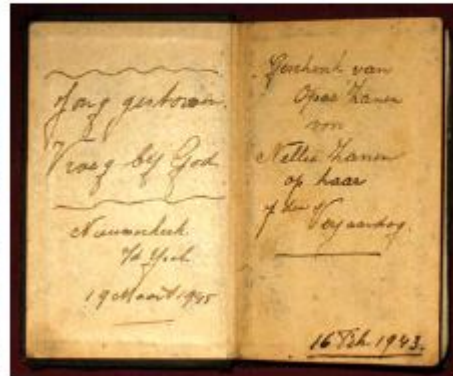 Jong gestorven.
Vroeg bij God
Nieuwerkerk
a/d Yssel
19 Maart 1945
Geschenk van
Opoe Zanen
voor
Nellie Zanen
op haar
Verjaardag.
16 Feb. 1943.